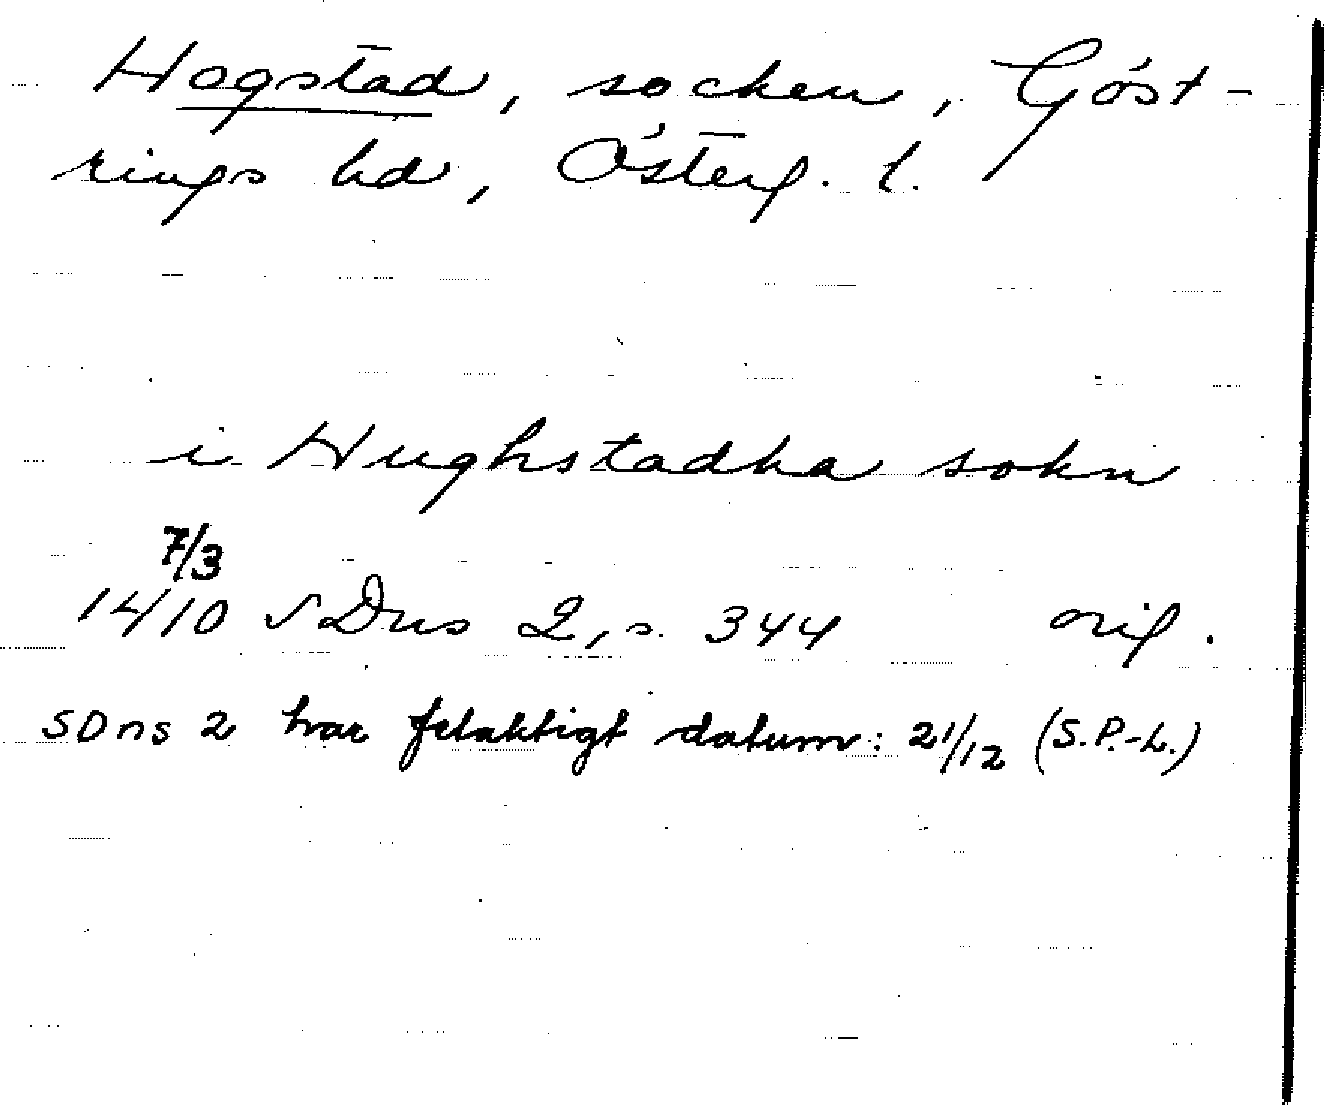 Hogstad, socken, Göst-
rings hd, Österg. l.
i Hughstadha sokn
7/3
14/10 SDns 2, s. 344 orig.
SDns 2 har felaktigt datum: 21/12 (S.P.-L.)